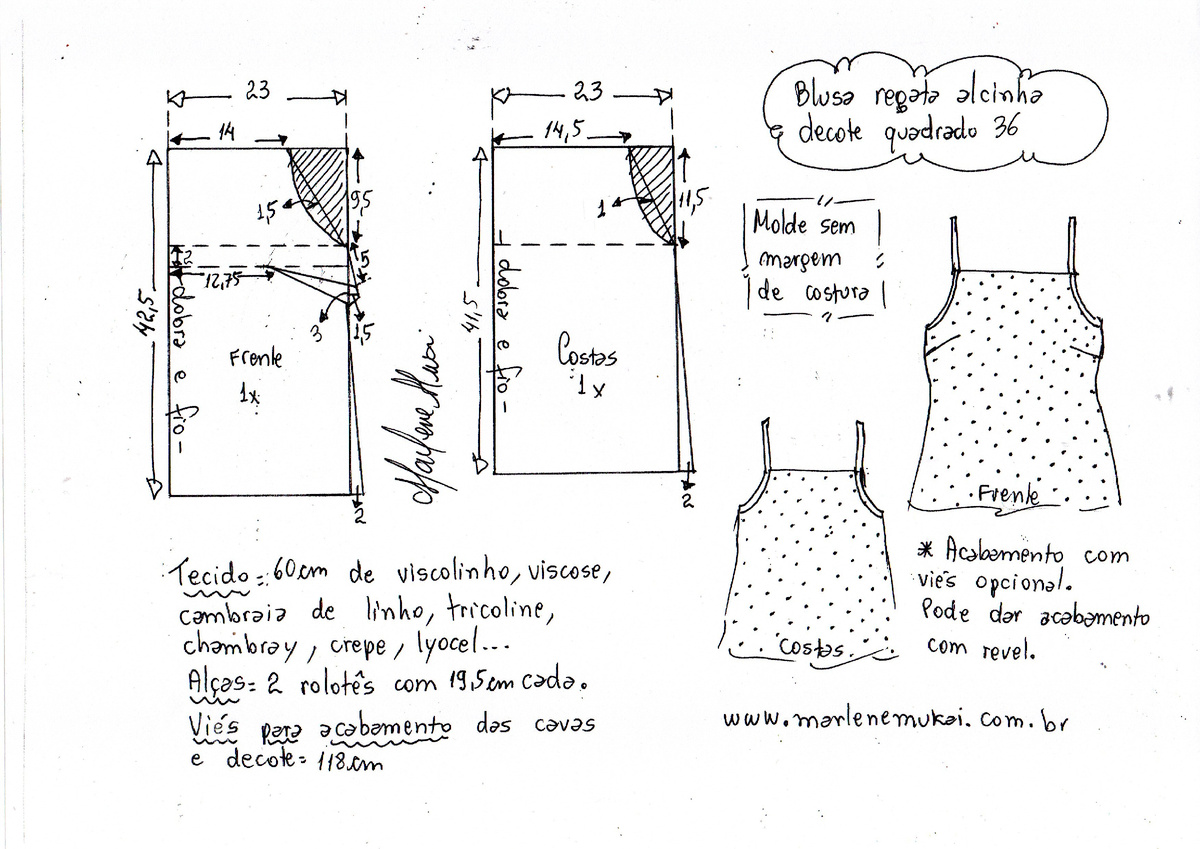 Blusa regata alcinha
e decote quadrado 36
Molde sem
margem
de costura
23
14
1,5
9,5
2
12,75
5
3
1,5
42,5
dobra e fio
Frente
1x
2
Marlene Mukai
23
14,5
1
11,5
41,5
dobra e fio
Costas
1x
2
Frente
Costas
* Acabamento com
viés opcional.
Pode dar acabamento
com revel.
Tecido = 60cm de viscolinho, viscose,
cambraia de linho, tricoline,
chambray, crepe, lyocel...
Alças = 2 rolotês com 19,5cm cada.
Viés para acabamento das cavas
e decote = 118cm
www.marlenemukai.com.br